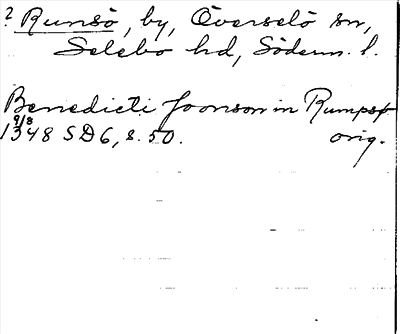 ? Runsö, by, Överselö sn,
Selebo hd, Söderm. l.
Benedicti Joonson in Rumpsø
9/8
1348 SD6, s. 50. orig.